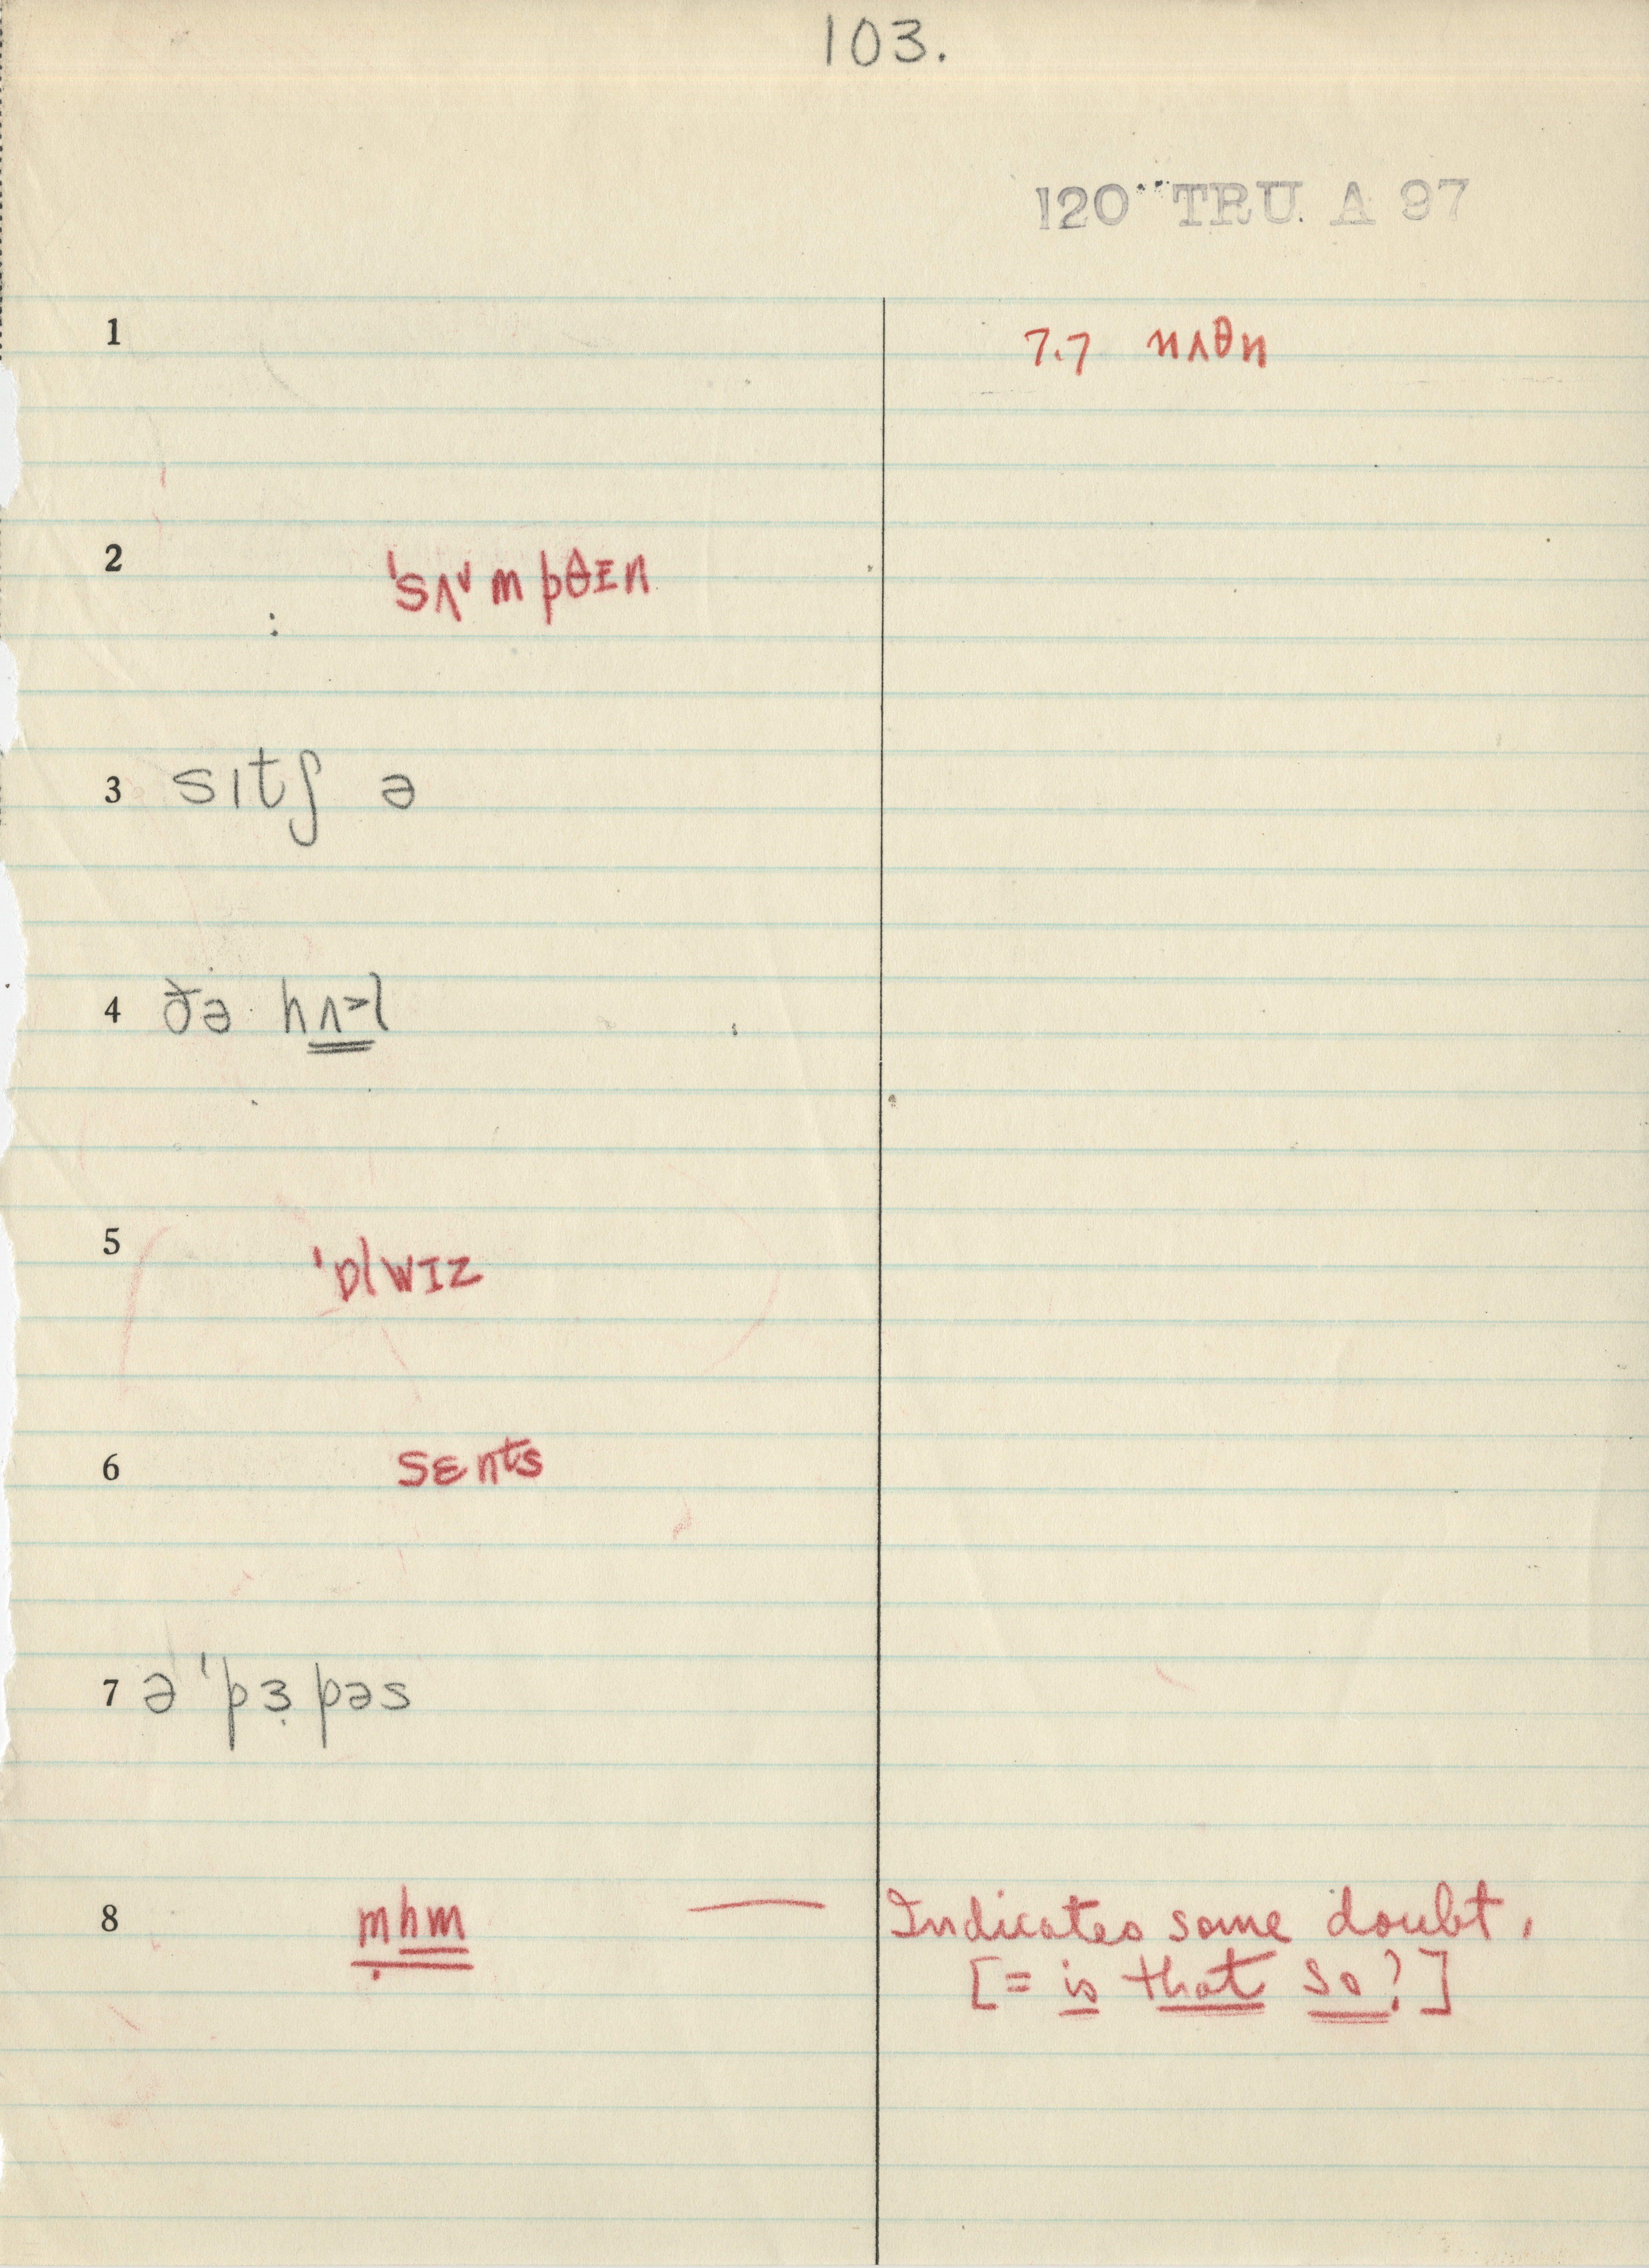 103.
120 TRU A 97
1 7.7 nʌθn
2 ˈsʌᵛm pθɪn
3 sɪtʃ ə
4 ðə hʌ˃l
5 ˈɒlwɪz
6 sɛnts
7 ə ˈpɜ̣ pəs
8 ṃhm — Indicates some doubt.
[= is that so?]